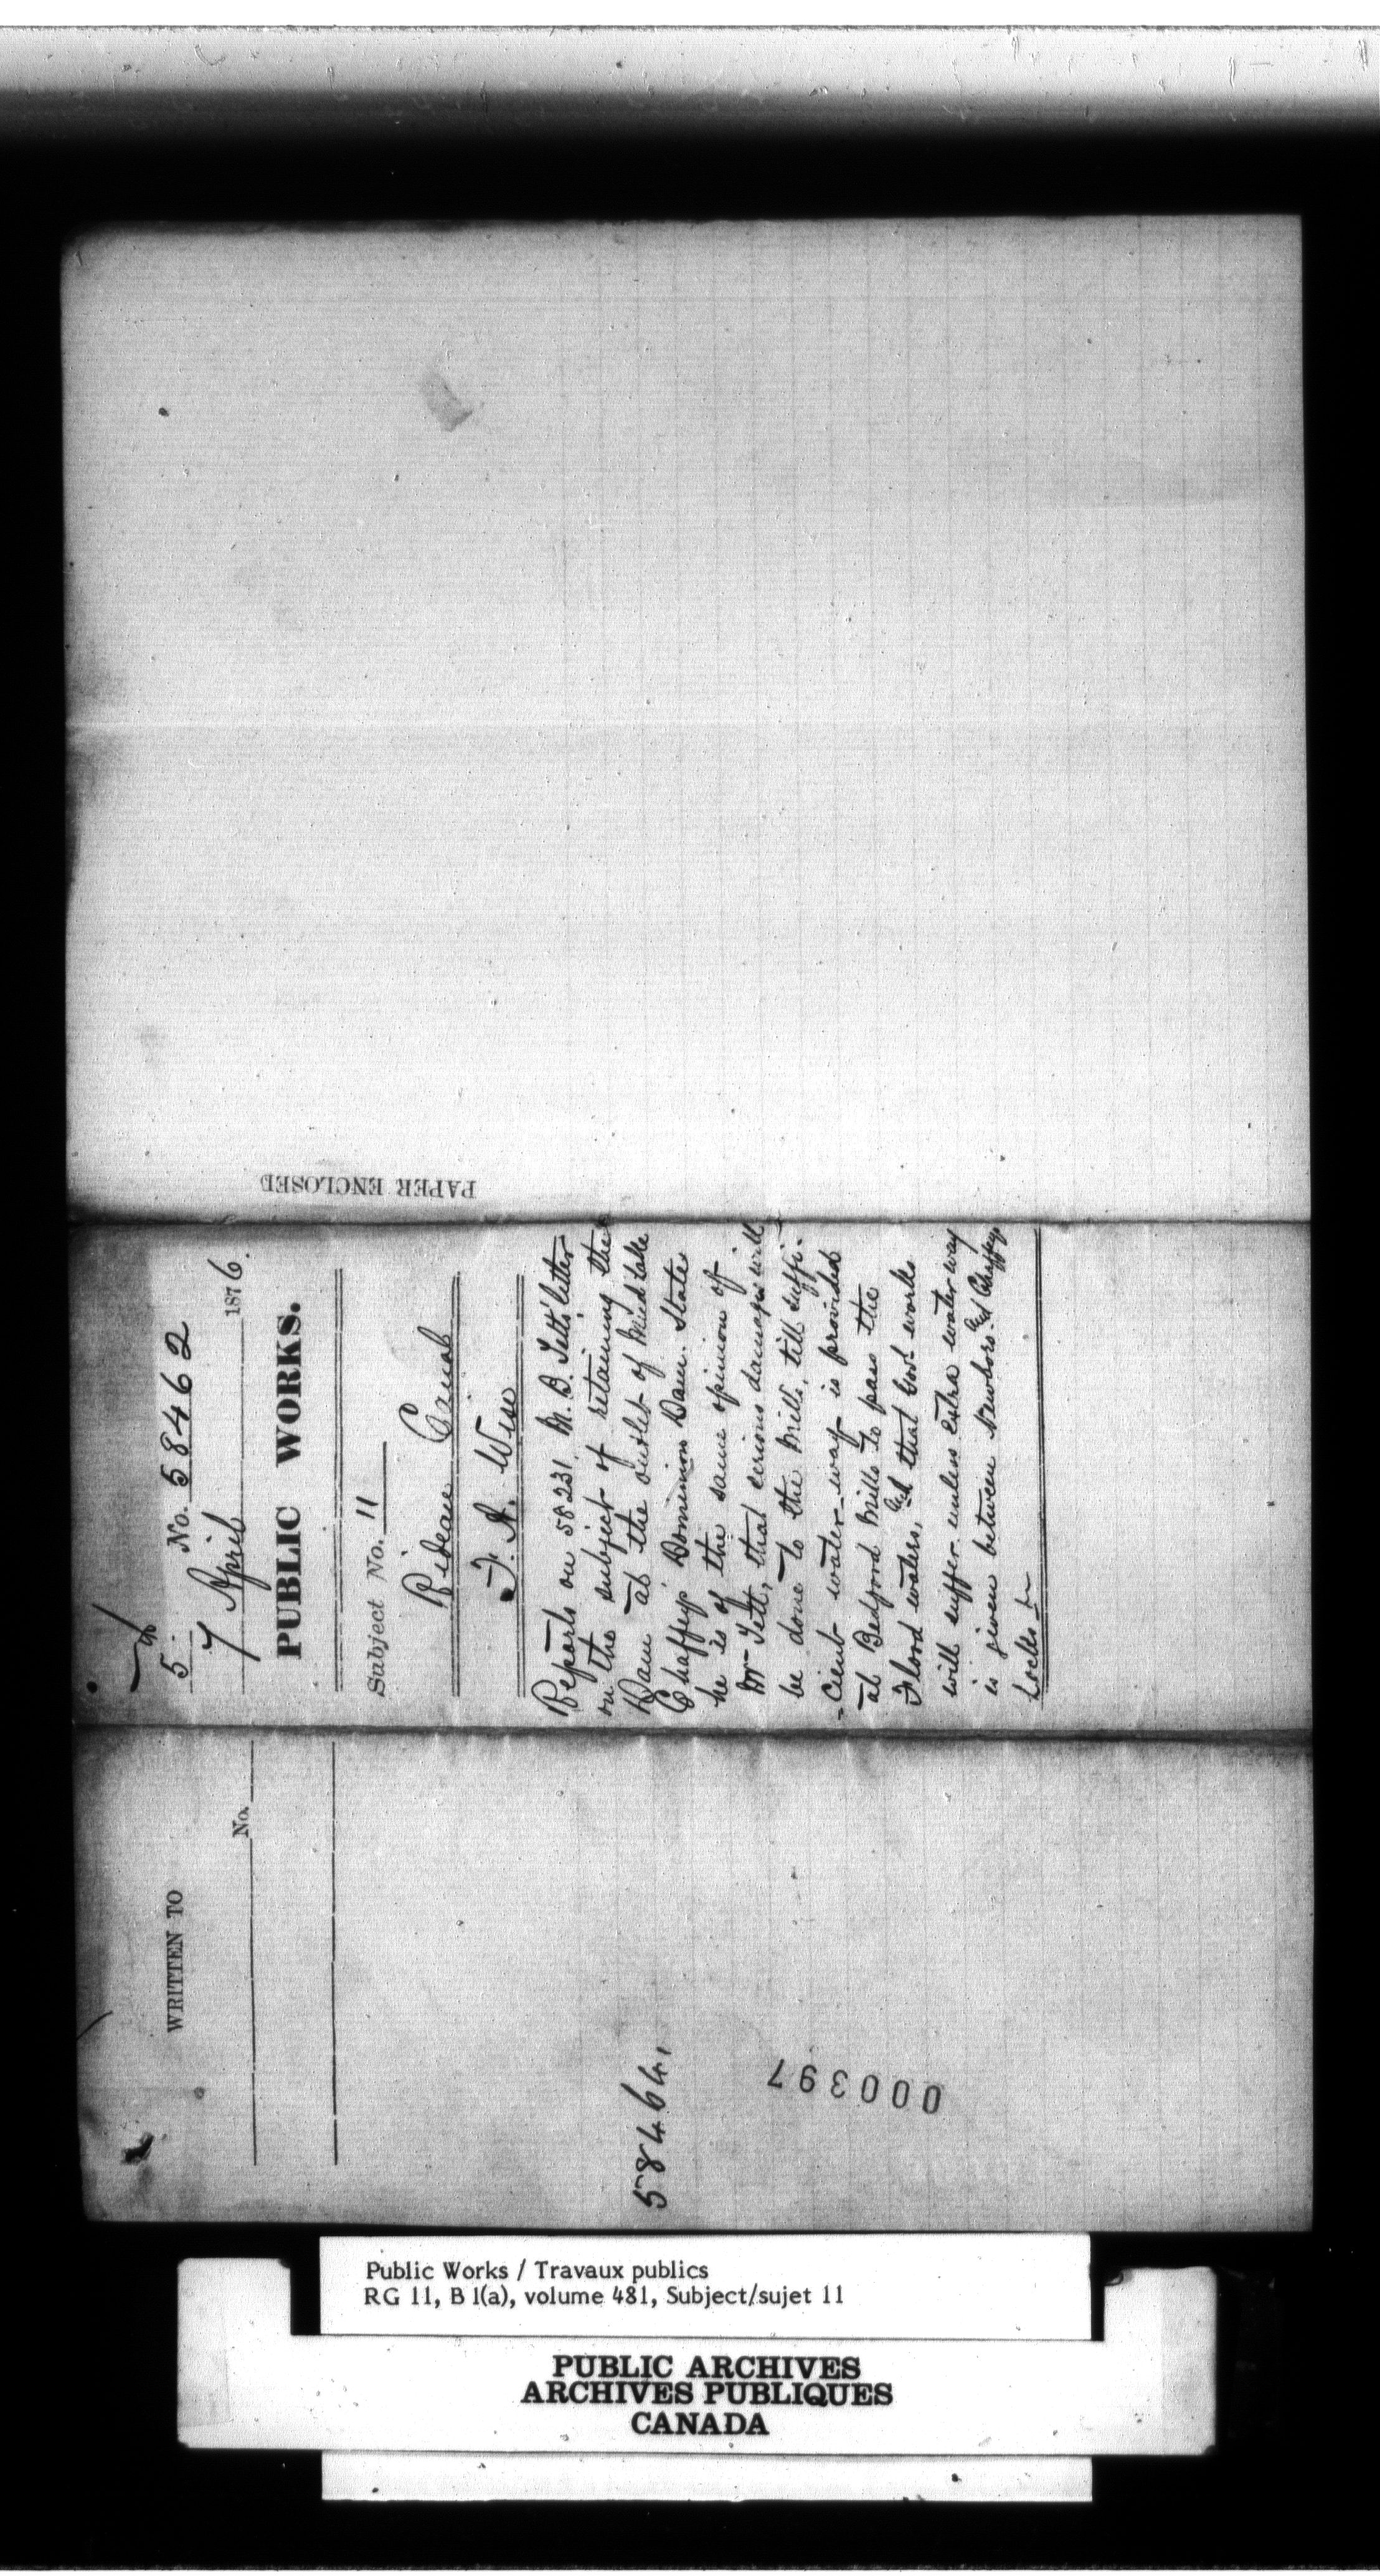 PAPER ENCLOSED
5 No. 58462
7 April 1876.
PUBLIC WORKS.
Subject No. 11
Rideau Canal
F. A. Wise
Reports on 58231, M. B. Tett's letter
on the subject of retaining the
Dam at the outlet of Mud Lake
Chaffeys Dominion Dam. States
he is of the same opinion of
Mr Tett, that serious damage will
be done to the Mills, till suffi-
-cient water-way is provided
at Bedford Mills to pass the
Flood waters, and that Govt works
will suffer unless extra water way
is given between Newboro and Chaffeys
Locks
WRITTEN TO
No.
58464,
000397
Public Works / Travaux publics
RG 11, B 1(a), volume 481, Subject/sujet 11
PUBLIC ARCHIVES
ARCHIVES PUBLIQUES
CANADA